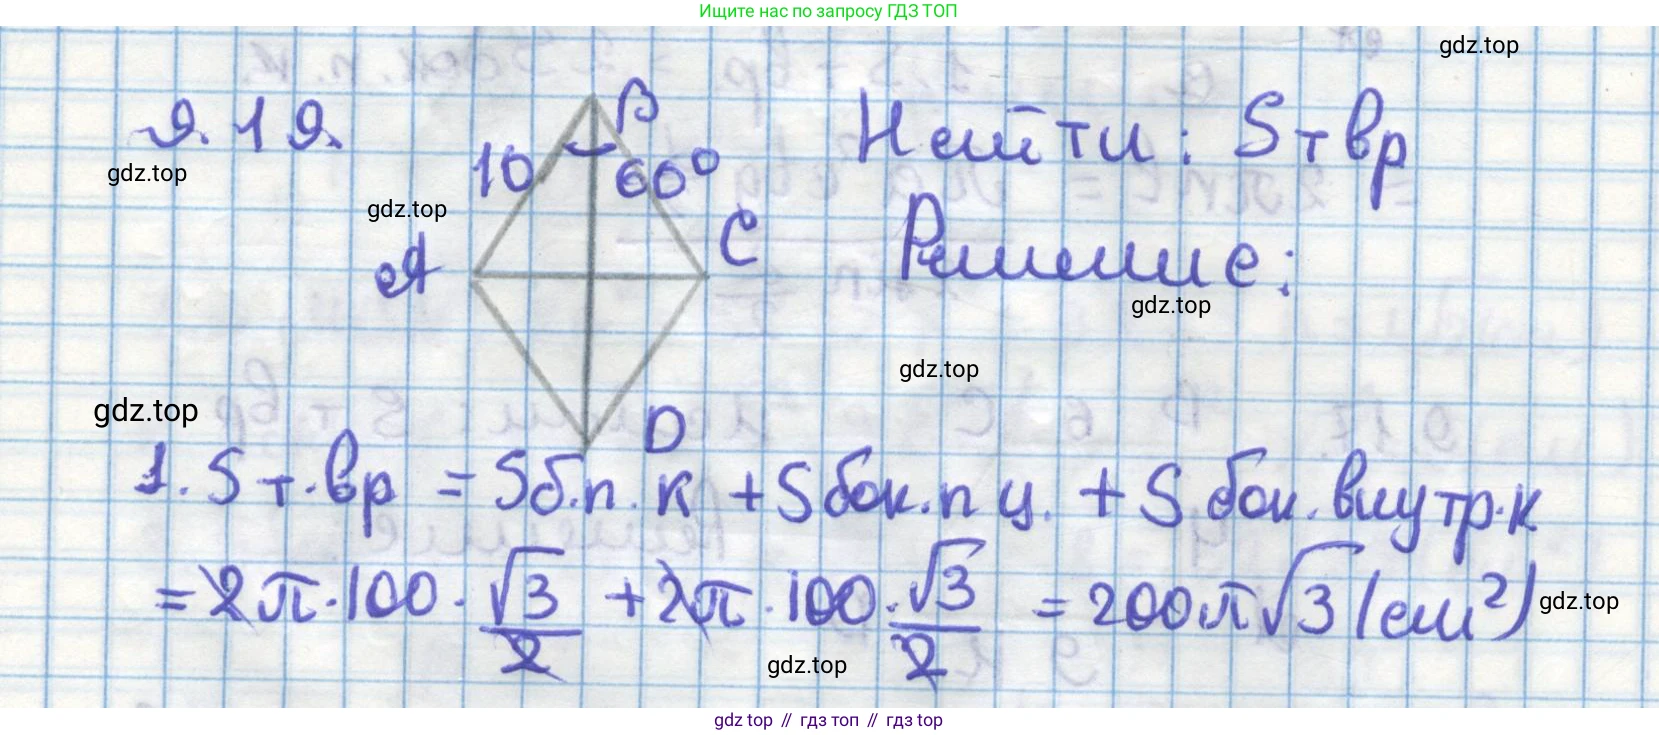 Ищите нас по запросу ГДЗ ТОП
gdz.top
9.19.
B
10
60°
Найти: Sт вр
gdz.top
gdz.top
A
C
Решение:
gdz.top
gdz.top
gdz.top
D
1. Sт.вр = Sб.п.к + Sбок.п ц. + Sбок.внутр.к
= 2π·100·√3/2 + 2π·100·√3/2 = 200π√3 (см²)
gdz.top
gdz.top
gdz top // гдз топ // gdz top